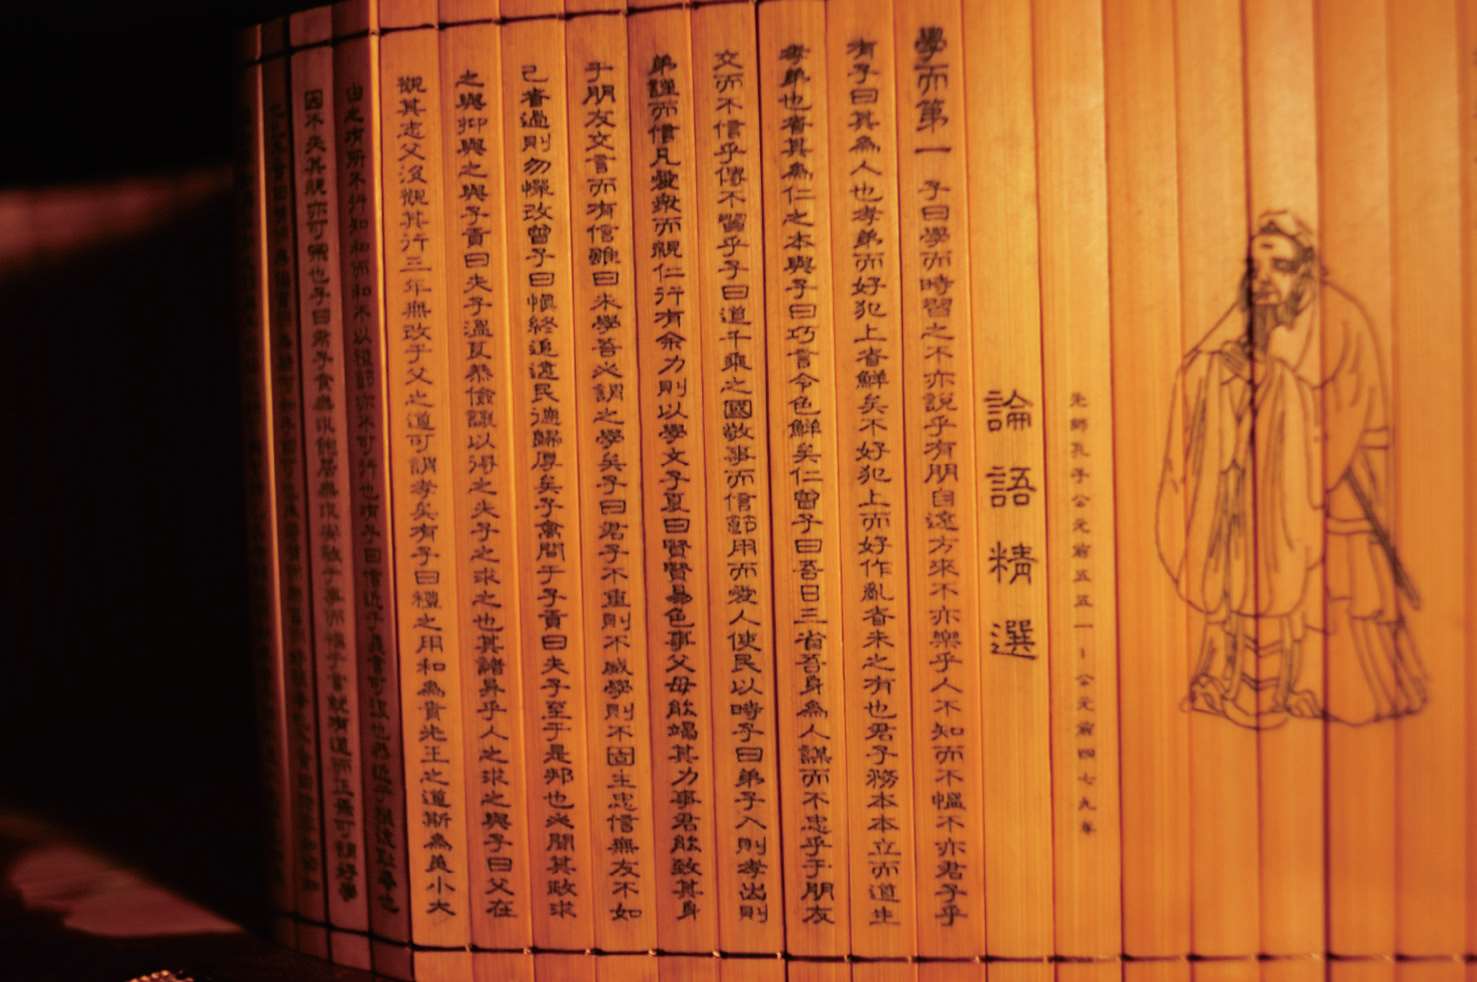 先師孔子公元前五五一－公元前四七九年
論語精選
學而第一 子曰學而時習之不亦說乎有朋自遠方來不亦樂乎人不知而不慍不亦君子乎
有子曰其為人也孝弟而好犯上者鮮矣不好犯上而好作亂者未之有也君子務本本立而道生
孝弟也者其為仁之本與子曰巧言令色鮮矣仁曾子曰吾日三省吾身為人謀而不忠乎于朋友
交而不信乎傳不習乎子曰道千乘之國敬事而信節用而愛人使民以時子曰弟子入則孝出則
弟謹而信凡愛眾而親仁行有余力則以學文子夏曰賢賢易色事父母能竭其力事君能致其身
于朋友交言而有信雖曰未學吾必謂之學矣子曰君子不重則不威學則不固主忠信無友不如
己者過則勿憚改曾子曰慎終追遠民德歸厚矣子禽問于子貢曰夫子至于是邦也必聞其政求
之與抑與之與子貢曰夫子溫良恭儉讓以得之夫子之求之也其諸異乎人之求之與子曰父在
觀其志父沒觀其行三年無改于父之道可謂孝矣有子曰禮之用和為貴先王之道斯為美小大
由之有所不行知和而和不以禮節亦不可行也有子曰信近于義言可復也恭近于禮遠恥辱也
因不失其親亦可宗也子曰君子食無求飽居無求安敏于事而慎于言就有道而正焉可謂好學